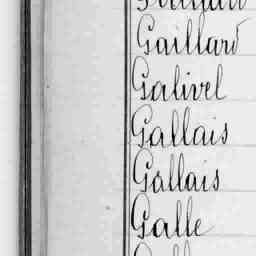 Gaillard
Galivel
Gallais
Gallais
Galle